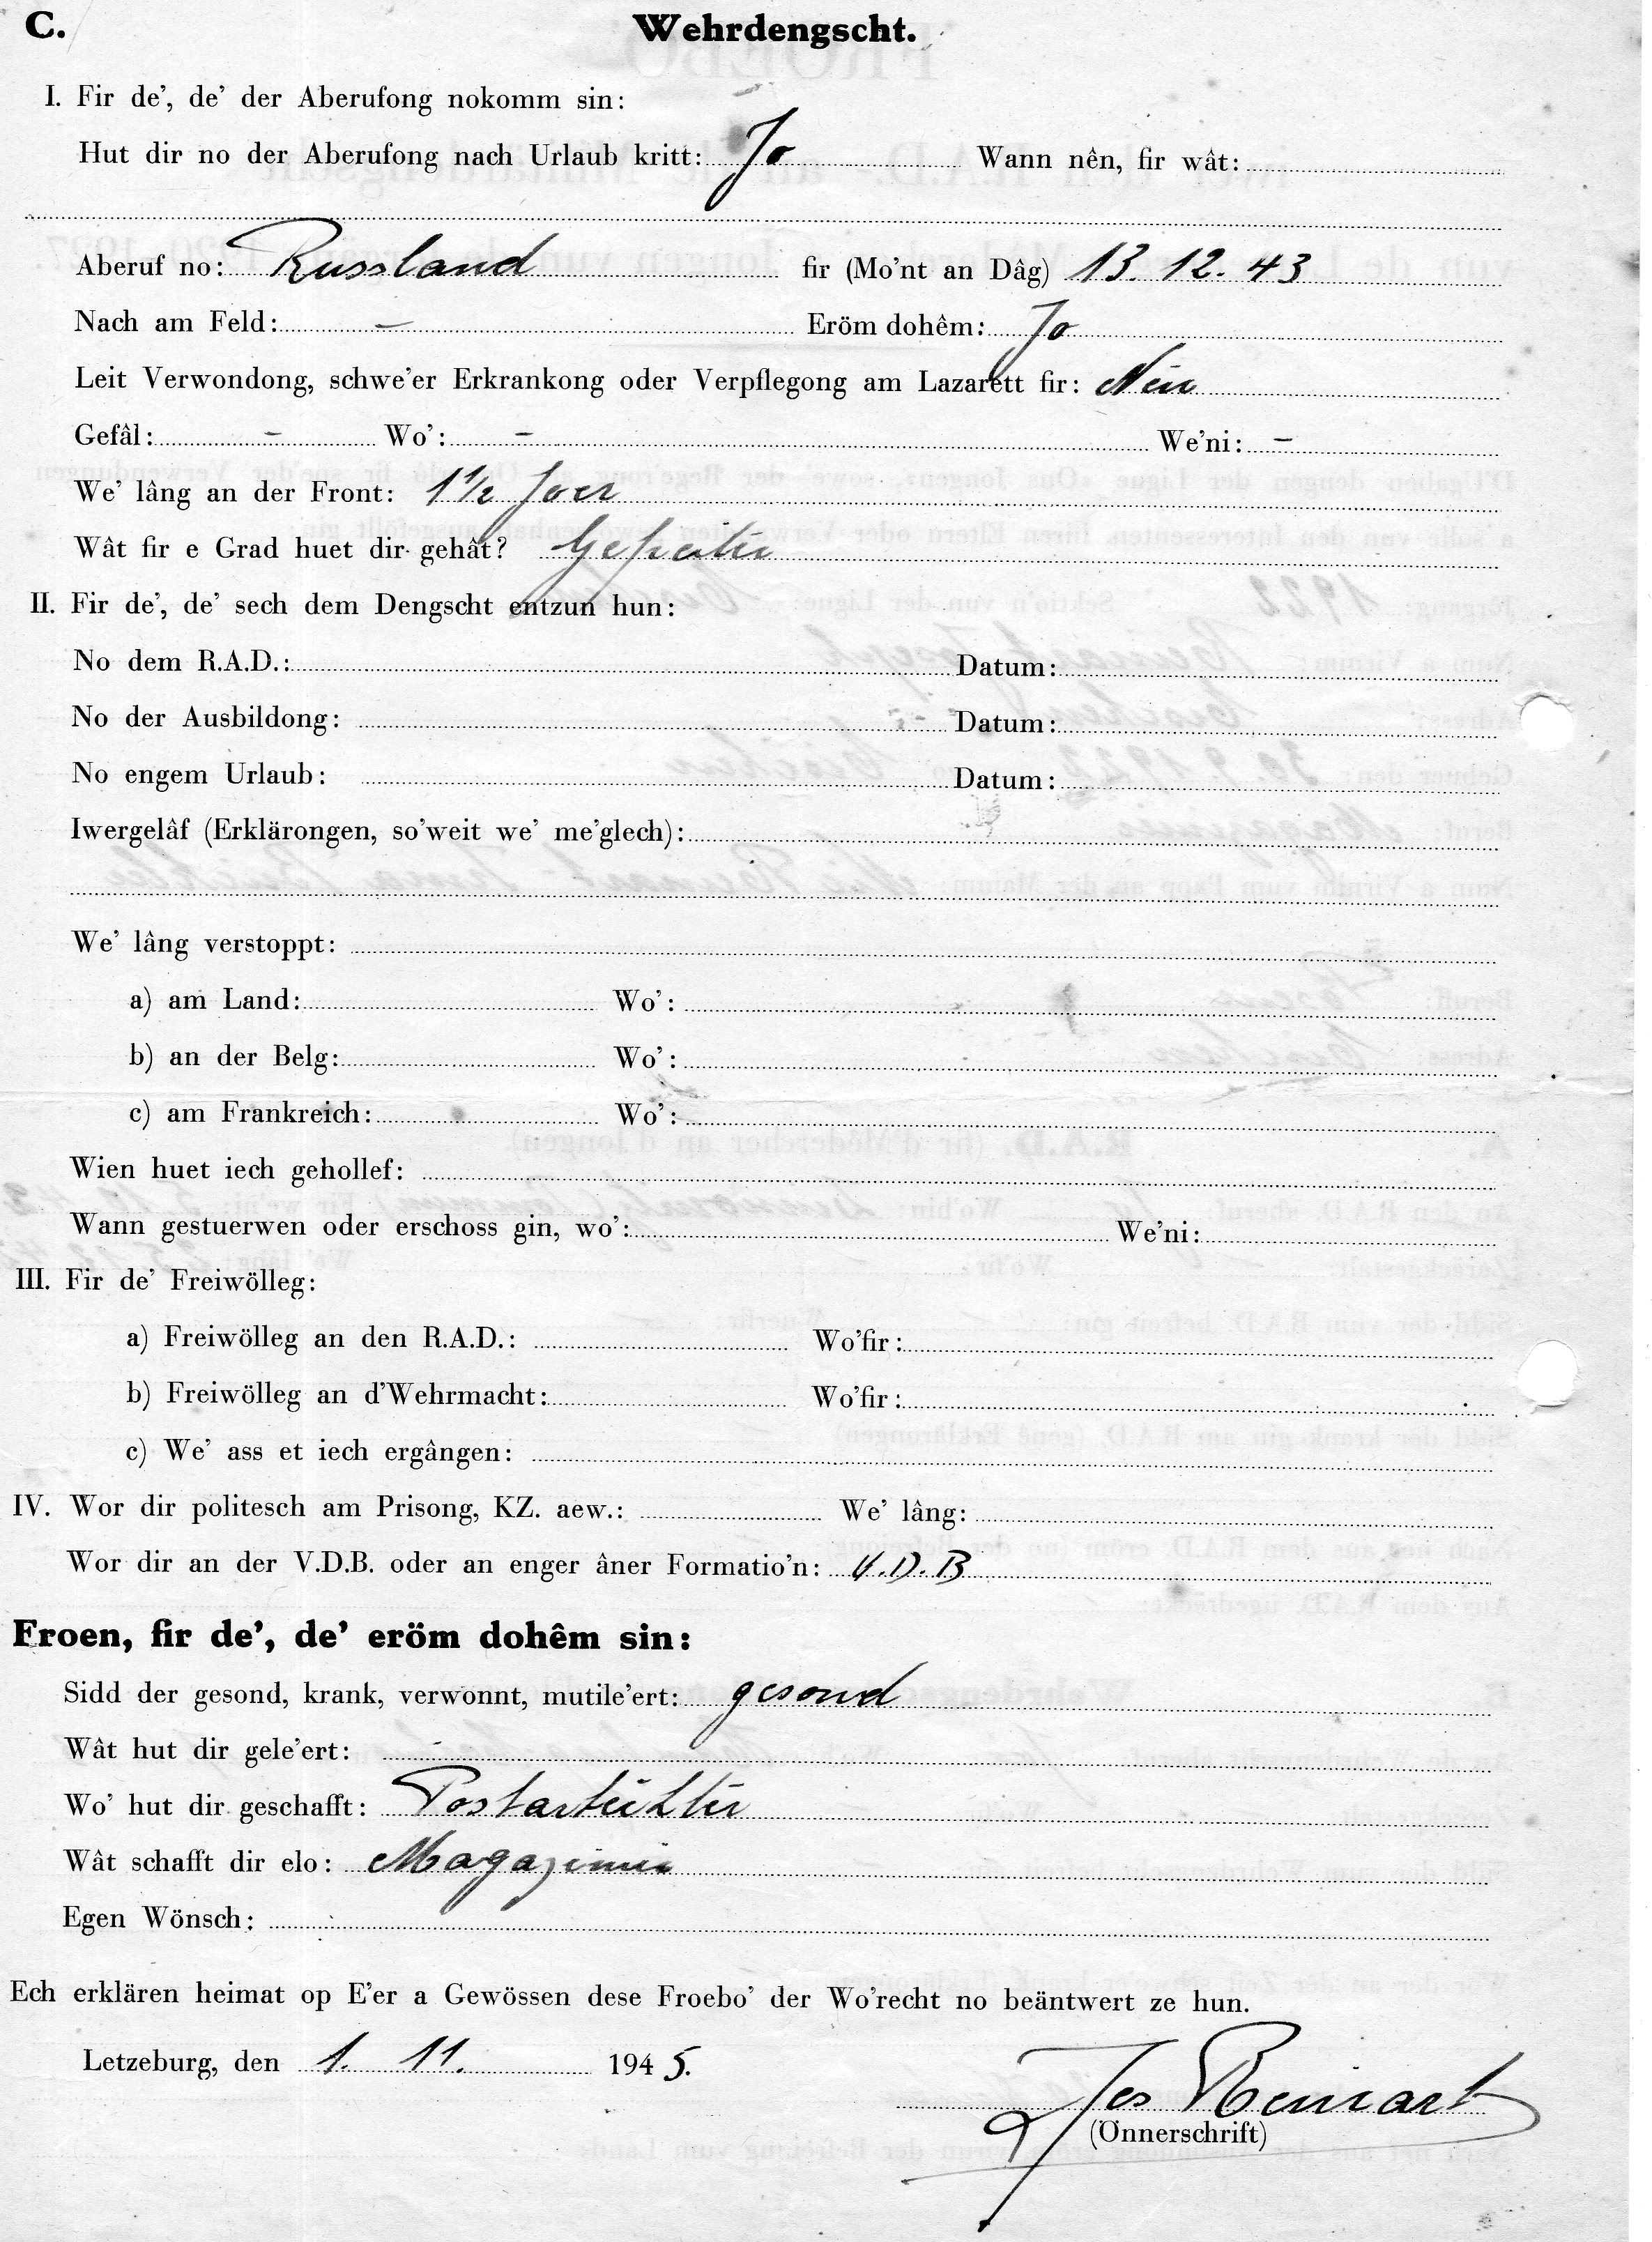 C. Wehrdengscht.
I. Fir de’, de’ der Aberufong nokomm sin:
Hut dir no der Aberufong nach Urlaub kritt: Jo Wann nên, fir wât:
Aberuf no: Russland fir (Mo’nt an Dâg) 13. 12. 43
Nach am Feld: – Eröm dohêm: Jo
Leit Verwondong, schwe’er Erkrankong oder Verpflegong am Lazarett fir: Nein
Gefâl: – Wo’: – We’ni: –
We’ lâng an der Front: 1½ Joer
Wât fir e Grad huet dir gehât? Gefreiter
II. Fir de’, de’ sech dem Dengscht entzun hun:
No dem R.A.D.: Datum:
No der Ausbildong: Datum:
No engem Urlaub: Datum:
Iwergelâf (Erklärongen, so’weit we’ me’glech):
We’ lâng verstoppt:
a) am Land: Wo’:
b) an der Belg: Wo’:
c) am Frankreich: Wo’:
Wien huet iech gehollef:
Wann gestuerwen oder erschoss gin, wo’: We’ni:
III. Fir de’ Freiwölleg:
a) Freiwölleg an den R.A.D.: Wo’fir:
b) Freiwölleg an d’Wehrmacht: Wo’fir:
c) We’ ass et iech ergângen:
IV. Wor dir politesch am Prisong, KZ. aew.: We’ lâng:
Wor dir an der V.D.B. oder an enger âner Formatio’n: V.D.B
Froen, fir de’, de’ eröm dohêm sin:
Sidd der gesond, krank, verwonnt, mutile’ert: gesond
Wât hut dir gele’ert: -
Wo’ hut dir geschafft:
Wât schafft dir elo: Magazinier
Egen Wönsch:
Ech erklären heimat op E’er a Gewössen dese Froebo’ der Wo’recht no beäntwert ze hun.
Letzeburg, den 1. 11. 1945.
Jos Reinart
(Önnerschrift)